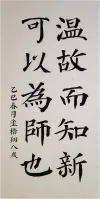 溫故而知新
可以為師也
乙巳春月
八歲